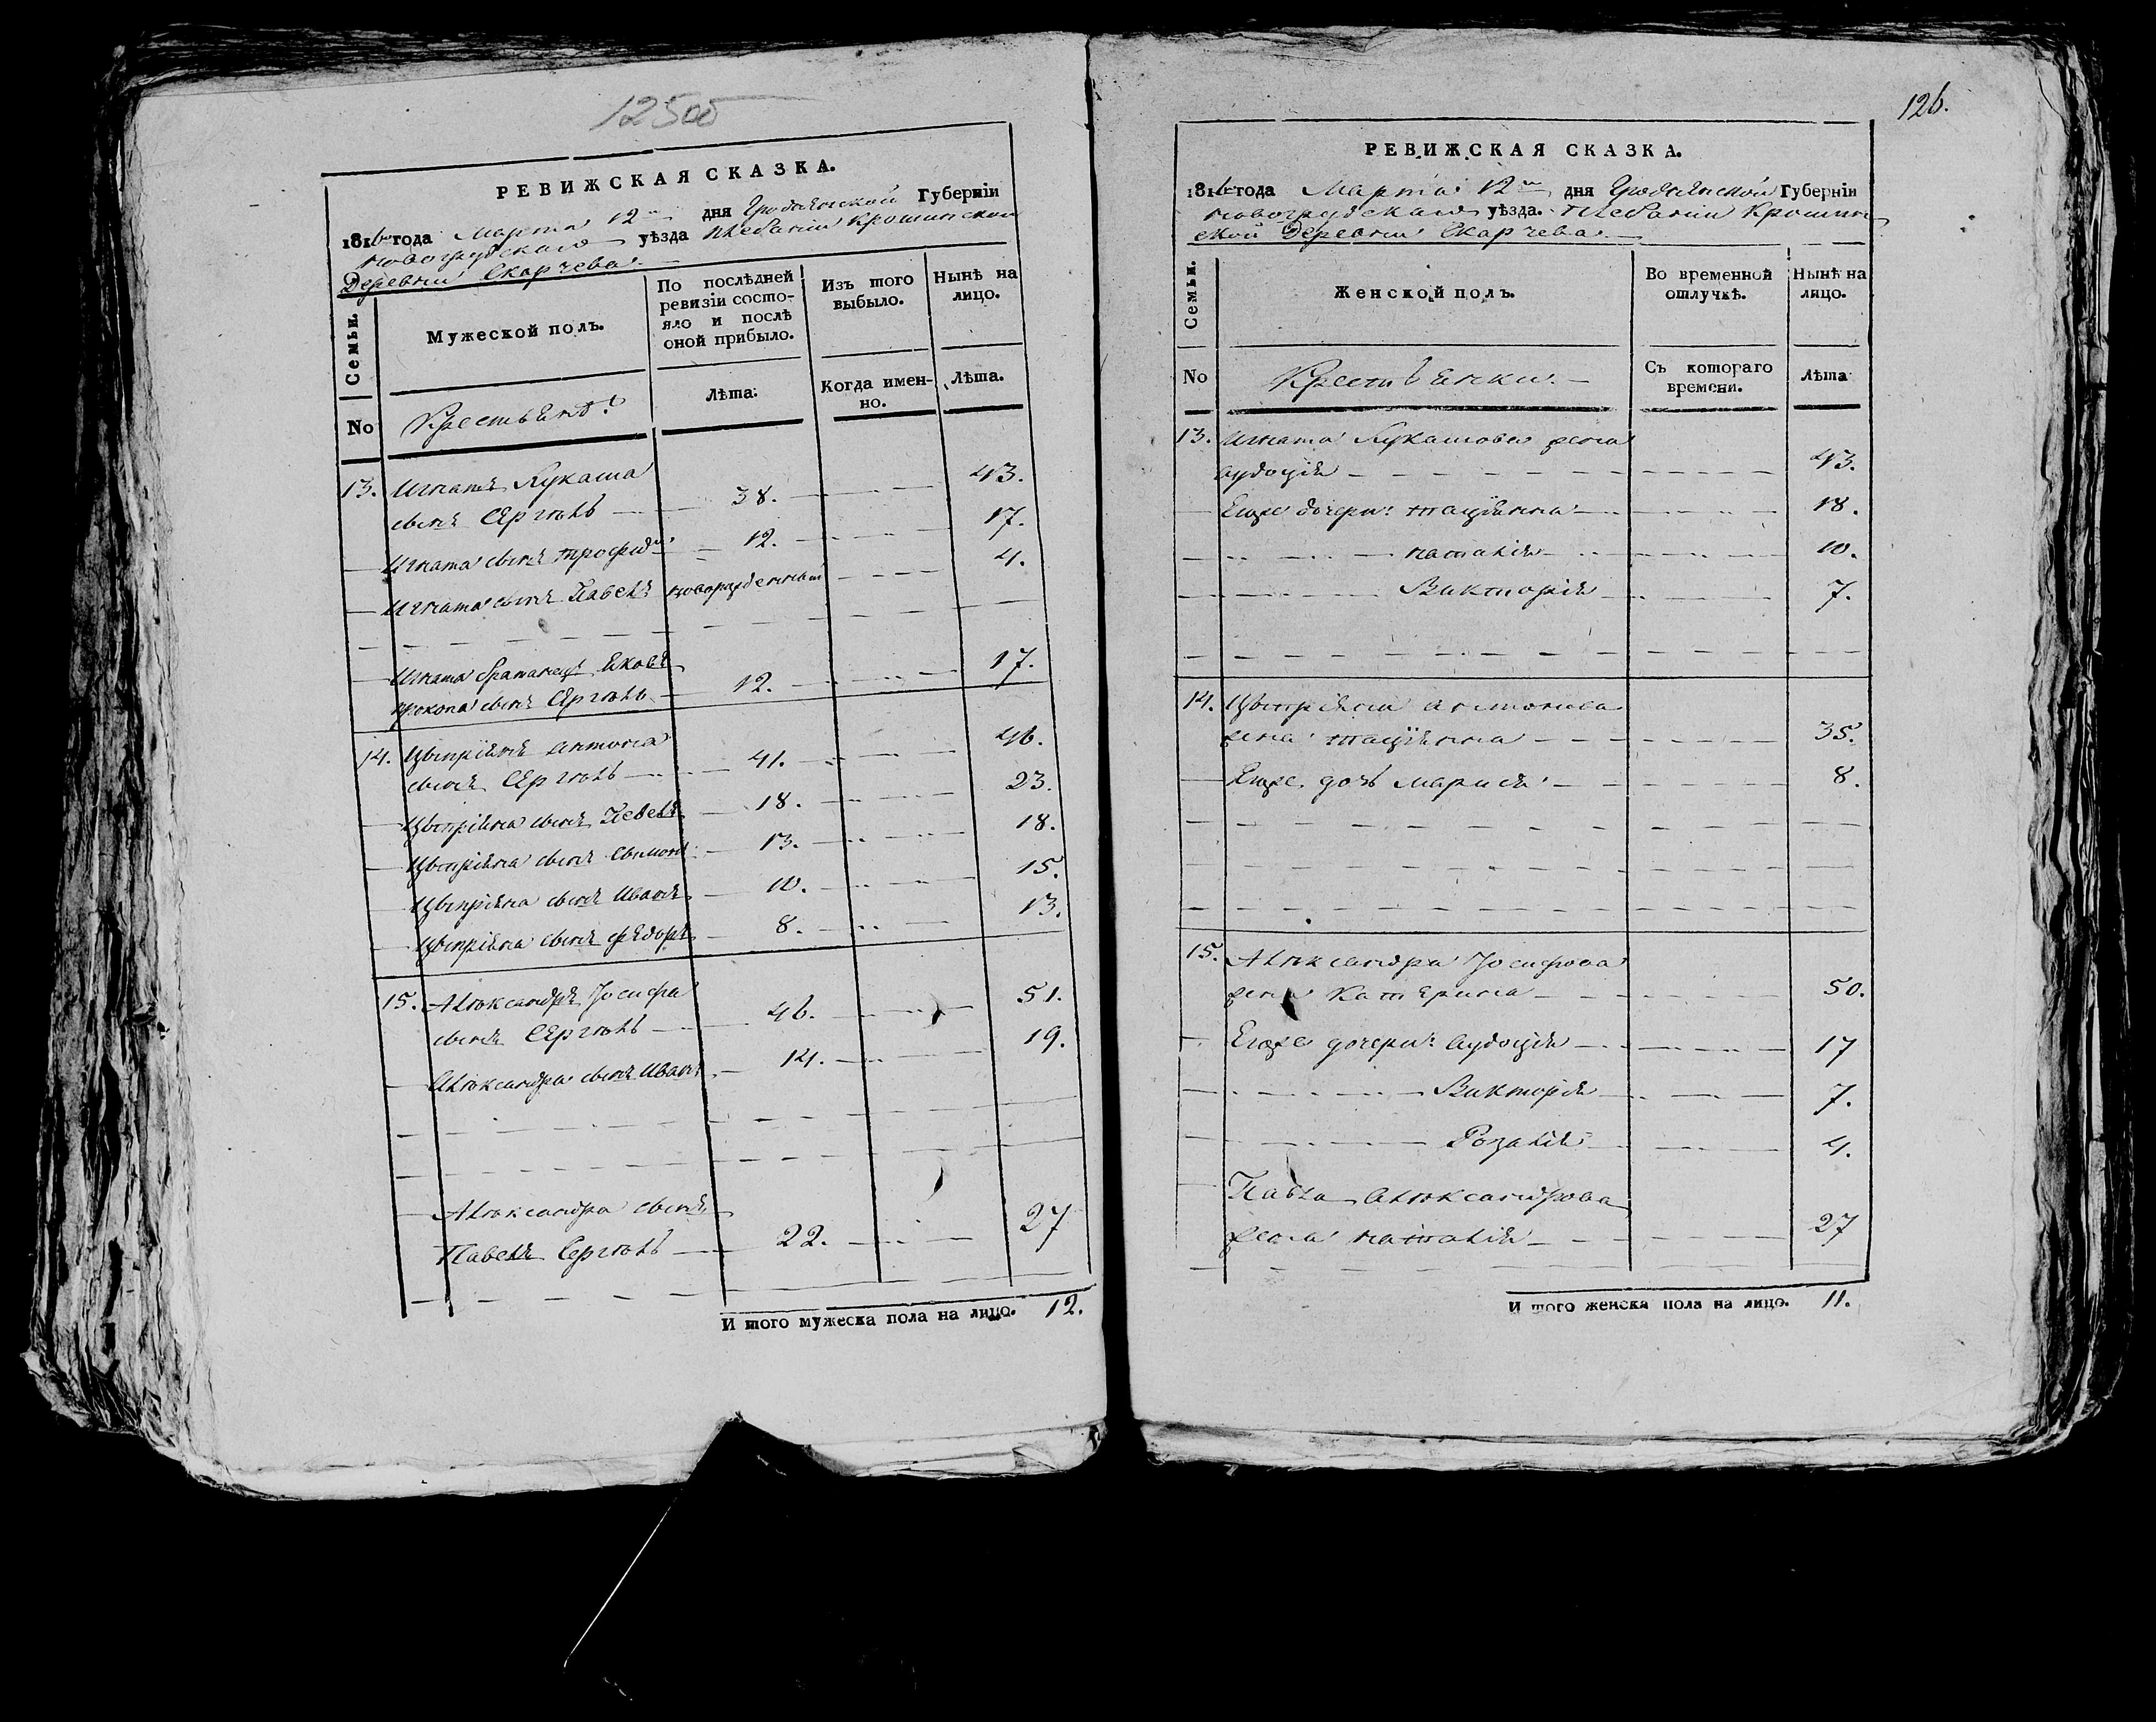 125об
РЕВИЖСКАЯ СКАЗКА.
1816 года Марта 12 дня Гродненской Губерніи
Новогрудскаго уѣзда Плебаніи Крошинской
Деревни Скарчева.
Семьи. Мужеской полъ. По послѣдней ревизіи состояло и послѣ оной прибыло. Изъ того выбыло. Нынѣ на лицо.
No Крестьянѣ. Лѣта. Когда именно. Лѣта.
13. Игнатъ Лукаша
сынъ Сергѣль 38. 43.
Игната сынъ Трофимъ 12. 17.
Игната сынъ Павелъ новорожденный 4.
Игната братанецъ Яковъ
Прокопа сынъ Сергѣль 12. 17.
14. Цыпріянъ Антона
сынъ Сергѣль 41. 46.
Цыпріяна сынъ Павелъ 18. 23.
Цыпріяна сынъ Сымонъ 13. 18.
Цыпріяна сынъ Иванъ 10. 15.
Цыпріяна сынъ Федоръ 8. 13.
15. Александръ Іосифа
сынъ Сергѣль 46. 51.
Александра сынъ Иванъ 14. 19.
Александра сынъ
Павелъ Сергѣль 22. 27
И того мужеска пола на лицо. 12.
126.
РЕВИЖСКАЯ СКАЗКА.
1816 года Марта 12 дня Гродненской Губерніи
Новогрудскаго уѣзда. Плебаніи Крошин
ской Деревни Скарчева.
Семьи. Женской полъ. Во временной отлучкѣ. Нынѣ на лицо.
No Крестьянки. Съ котораго времени. Лѣта
13. Игната Лукашова жена
Аудоція 43.
Егоже дочери: Тацiянна 18.
Наталія 10.
Викторія 7.
14. Цыпріяна Антонова
жена Тацiянна 35.
Егоже дочь Марися 8.
15. Александра Іосифова
жена Катерина 50.
Егоже дочери: Аудоція 17
Викторія 7.
Розалія 4.
Павла Александрова
жена Наталія 27
И того женска пола на лицо. 11.